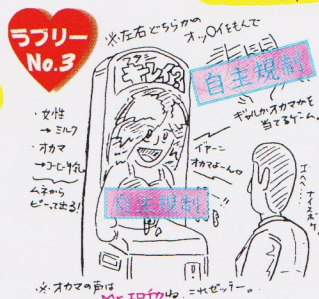 ラブリー
No.3
※左右どちらかの
オッ〇イをもんで
自主規制
ギャルかオカマかを
当てるゲーム。
キレイ?
・女性
→ミルク
・オカマ
→コーヒー牛乳
ムネから
ピーって出る!
イヤーン
オカマよーん。
エヘヘ…
ナイスボケ。
自主規制
※オカマの声は
Mr.
これゼッテー。